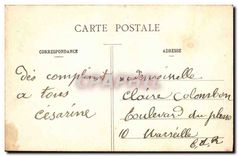 CARTE POSTALE
CORRESPONDANCE
ADRESSE
Dès compliment
a tous
Césarine
Mademoiselle
Claire Colombon
boulevard du
10 Marseille
B.d.R